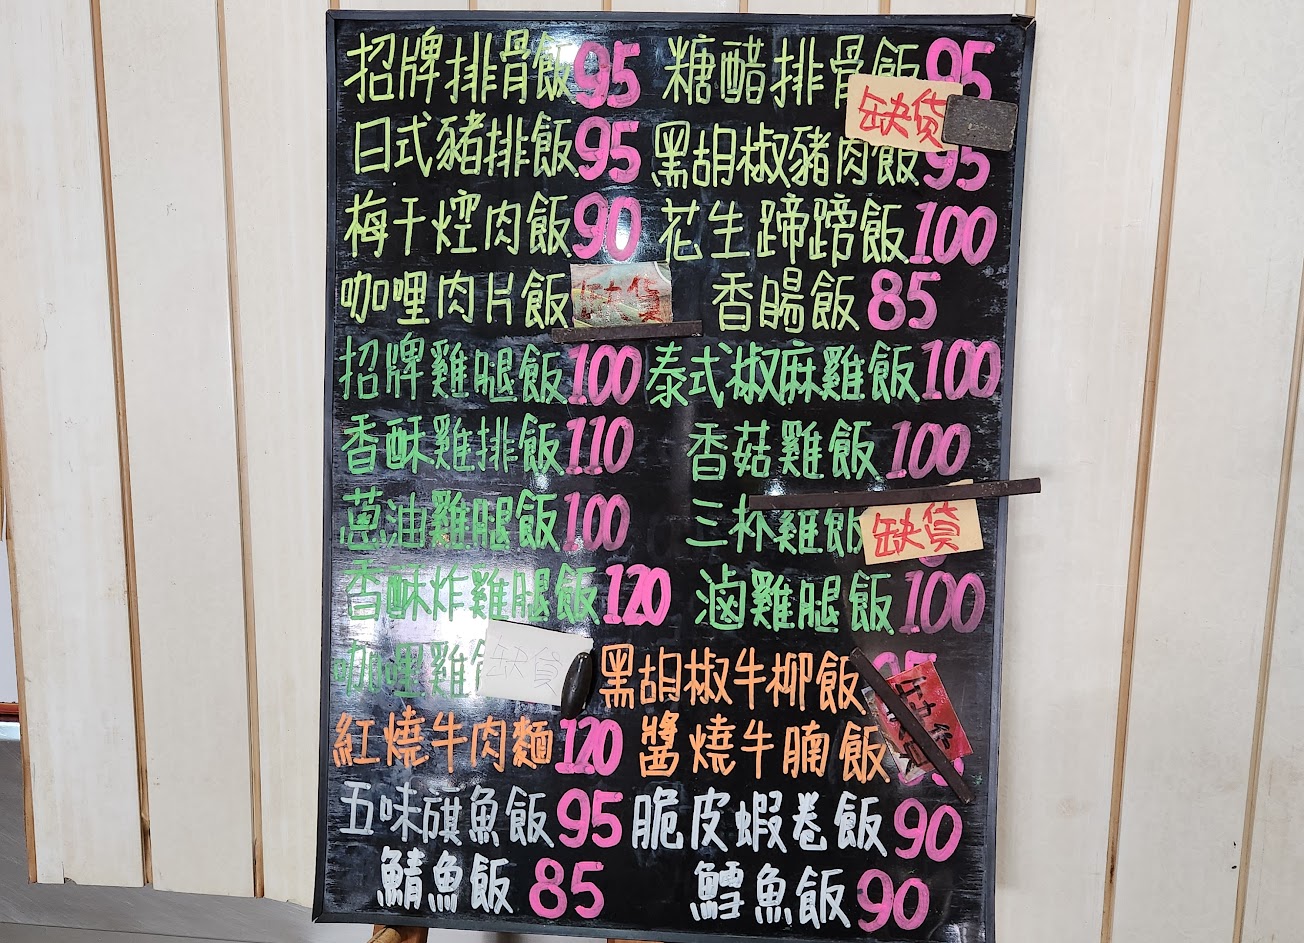 招牌排骨飯95 糖醋排骨飯95
缺货
日式豬排飯95 黑胡椒豬肉飯95
梅干焢肉飯90 花生蹄膀飯100
咖哩肉片飯 缺貨 香腸飯85
招牌雞腿飯100 泰式椒麻雞飯100
香酥雞排飯110 香菇雞飯100
蔥油雞腿飯100 三杯雞飯 缺貨
香酥炸雞腿飯120 滷雞腿飯100
咖哩雞飯 缺貨 黑胡椒牛柳飯95
紅燒牛肉麵120 醬燒牛腩飯
五味旗魚飯95 脆皮蝦卷飯90
鯖魚飯85 鱈魚飯90